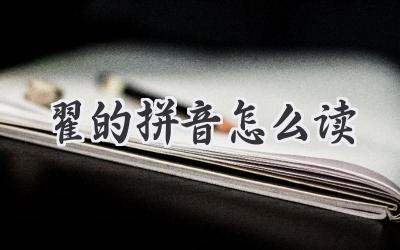 翟的拼音怎么读